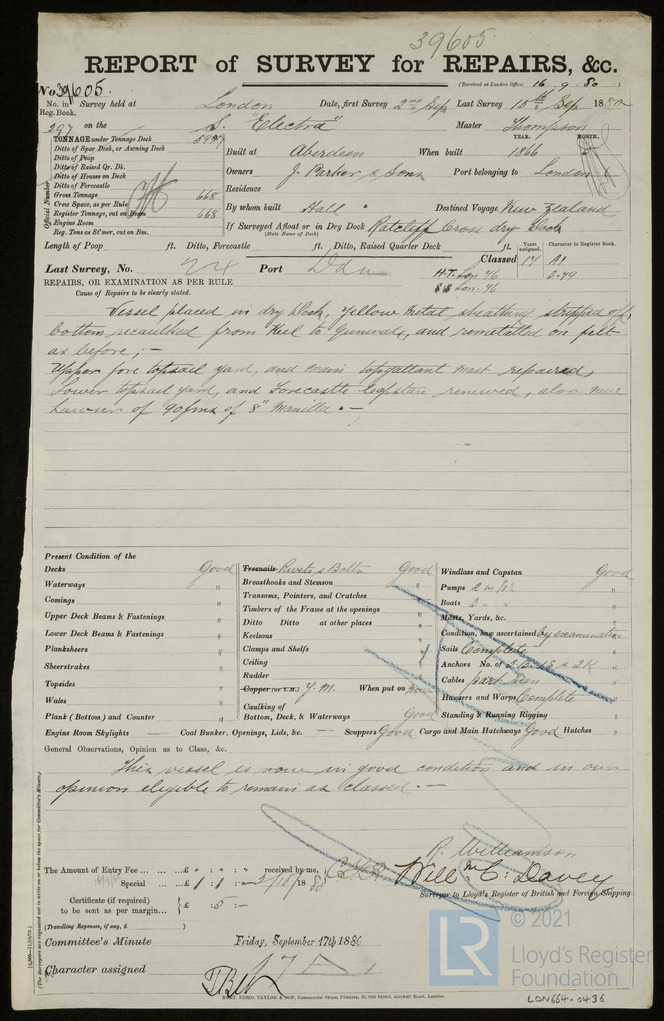 39605
REPORT of SURVEY for REPAIRS, &c.
(Received at London Office, 16.9.80)
No. 39605.
No. in Reg. Book. Survey held at London Date, first Survey 2nd Sep Last Survey 15th Sep 1880
297 on the S. "Electra" Master Thompson
TONNAGE under Tonnage Deck
Ditto of Spar Deck, or Awning Deck
Ditto of Poop
Ditto of Raised Qr. Dk.
Ditto of House on Deck
Ditto of Forecastle
Gross Tonnage 668
Crew Space, as per Rule
Register Tonnage, cut on Beam 668
Engine Room
Reg. Tons as St'mer, cut on Bm.
Official Number
YEAR. MONTH.
Built at Aberdeen When built 1866
Owners J. Parker & Sons Port belonging to London
Residence
By whom built Hall " Destined Voyage New Zealand
If Surveyed Afloat or in Dry Dock Ratcliff Cross dry Dock
(State Name of Dock)
Length of Poop ft. Ditto, Forecastle ft. Ditto, Raised Quarter Deck ft.
Years assigned. Character in Register Book.
Classed 17 A1
3-79
Last Survey, No. 24 Port
H.T. Lon 76
Lon. 76
REPAIRS, OR EXAMINATION AS PER RULE
Cause of Repairs to be clearly stated.
Vessel placed in dry Dock, Yellow metal sheathing stripped off,
bottom recaulked from Keel to Gunwale, and remetalled on felt
as before; -
Upper fore topsail yard, and main topgallant mast repaired,
Lower topsail yard, and Forecastle Capstan renewed, also new
hawser of 90 fms of 8" Manilla. -
Present Condition of the
Decks Good
Waterways "
Comings "
Upper Deck Beams & Fastenings "
Lower Deck Beams & Fastenings "
Planksheers "
Sheerstrakes "
Topsides "
Wales "
Plank (Bottom) and Counter "
Treenails Rivets & Bolts Good
Breasthooks and Stemson "
Transoms, Pointers, and Crutches "
Timbers of the Frame at the openings "
Ditto Ditto at other places "
Keelsons "
Clamps and Shelfs "
Ceiling "
Rudder "
Copper (or Y.M.) Y.M. When put on now
Caulking of Bottom, Deck, & Waterways Good
Windlass and Capstan Good
Pumps "
Boats 3 "
Masts, Yards, &c. "
Condition, how ascertained by examination
Sails Complete "
Anchors No. of 3 B. 1 S. & 2 K "
Cables part seen "
Hawsers and Warps Complete "
Standing & Running Rigging "
Engine Room Skylights — Coal Bunker, Openings, Lids, &c. — Scuppers Good Cargo and Main Hatchways Good Hatches "
General Observations, Opinion as to Class, &c.
This vessel is now in good condition and in our
opinion eligible to remain as classed. -
R. Williamson
Willm C. Davey
Surveyor to Lloyd's Register of British and Foreign Shipping.
The Amount of Entry Fee ... ... £ " : " : " received by me,
Special ... ... £ 1 : 1 : - 2/10/1880
Certificate (if required) to be sent as per margin... £ : 5 : -
(Travelling Expenses, if any, £ )
Committee's Minute Friday, September 17th 1880
Character assigned
(The Surveyors are requested not to write on or below the space for Committee's Minute.)
ROBT. EDMD. TAYLOR & SON, Commercial Steam Printers, 19, Old Street, Goswell Road, London.
© 2021
LR
Lloyd's Register
Foundation
LON664-0436